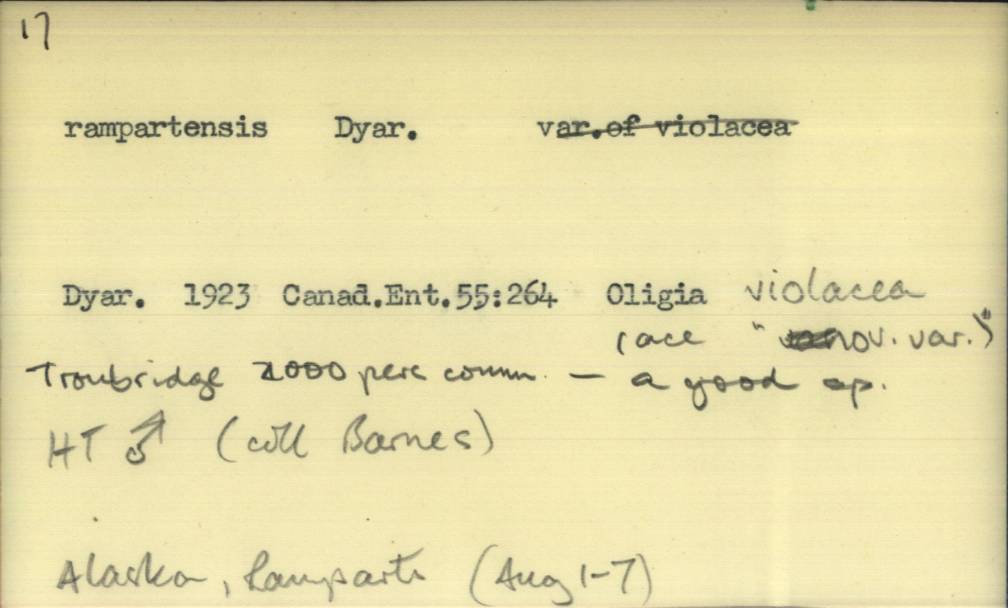 17
rampartensis Dyar. var.of violacea
Dyar. 1923 Canad.Ent.55:264 Oligia violacea
race "nov. var.)"
Troubridge 2000 pers comm. — a good sp.
HT ♂ (coll Barnes)
Alaska, Ramparts (Aug 1-7)